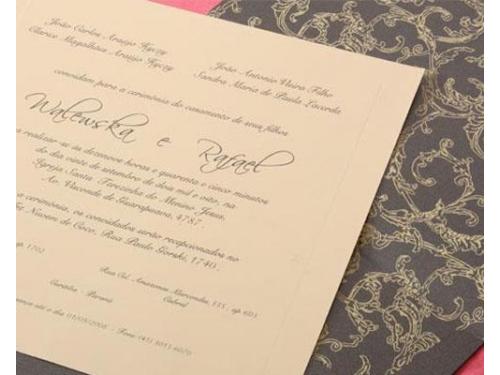 João Carlos Araújo
Clarice Magalhães Araújo
João Antonio Vieira Filho
Sandra Maria de Paula Lacerda
convidam para a cerimônia do casamento de seus filhos
Walewska e Rafael
a realizar-se às dezenove horas e quarenta e cinco minutos
do dia vinte de setembro de dois mil e oito, na
Igreja Santa Terezinha do Menino Jesus.
Av. Visconde de Guarapuava, 4787.
a cerimônia, os convidados serão recepcionados no
Nuvem de Coco, Rua Paulo Gorski, 1740.
ap. 1702
Rua Cel. Amazonas Marcondes, 335, ap. 603
Curitiba - Paraná
Cabral
até o dia 01/09/2008 - Fone (41) 3013 6070